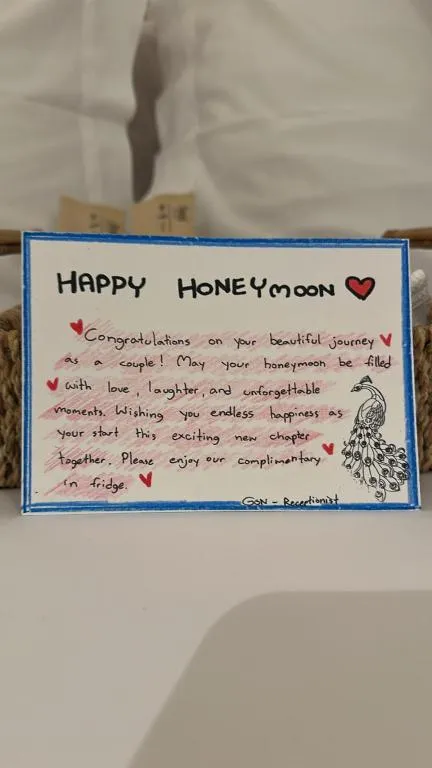 HAPPY HONEYMOON
Congratulations on your beautiful journey
as a couple! May your honeymoon be filled
with love, laughter, and unforgettable
moments. Wishing you endless happiness as
your start this exciting new chapter
together. Please enjoy our complimentary
in fridge.
GSN - Receptionist